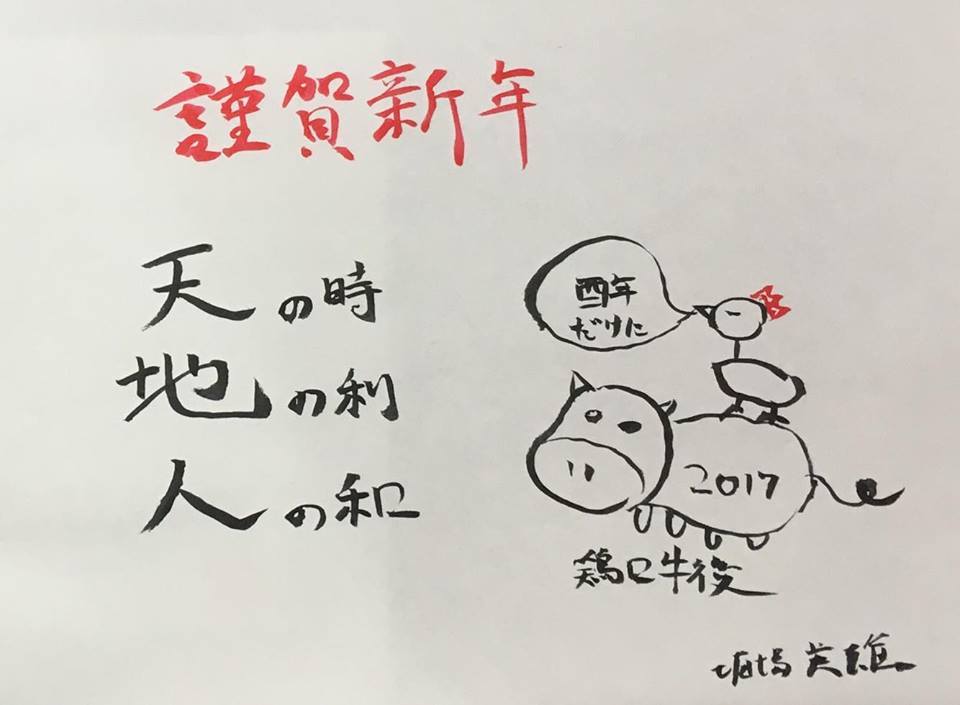 謹賀新年
天の時
地の利
人の和
酉年
だけに
2017
鶏口牛後
堀場英雄